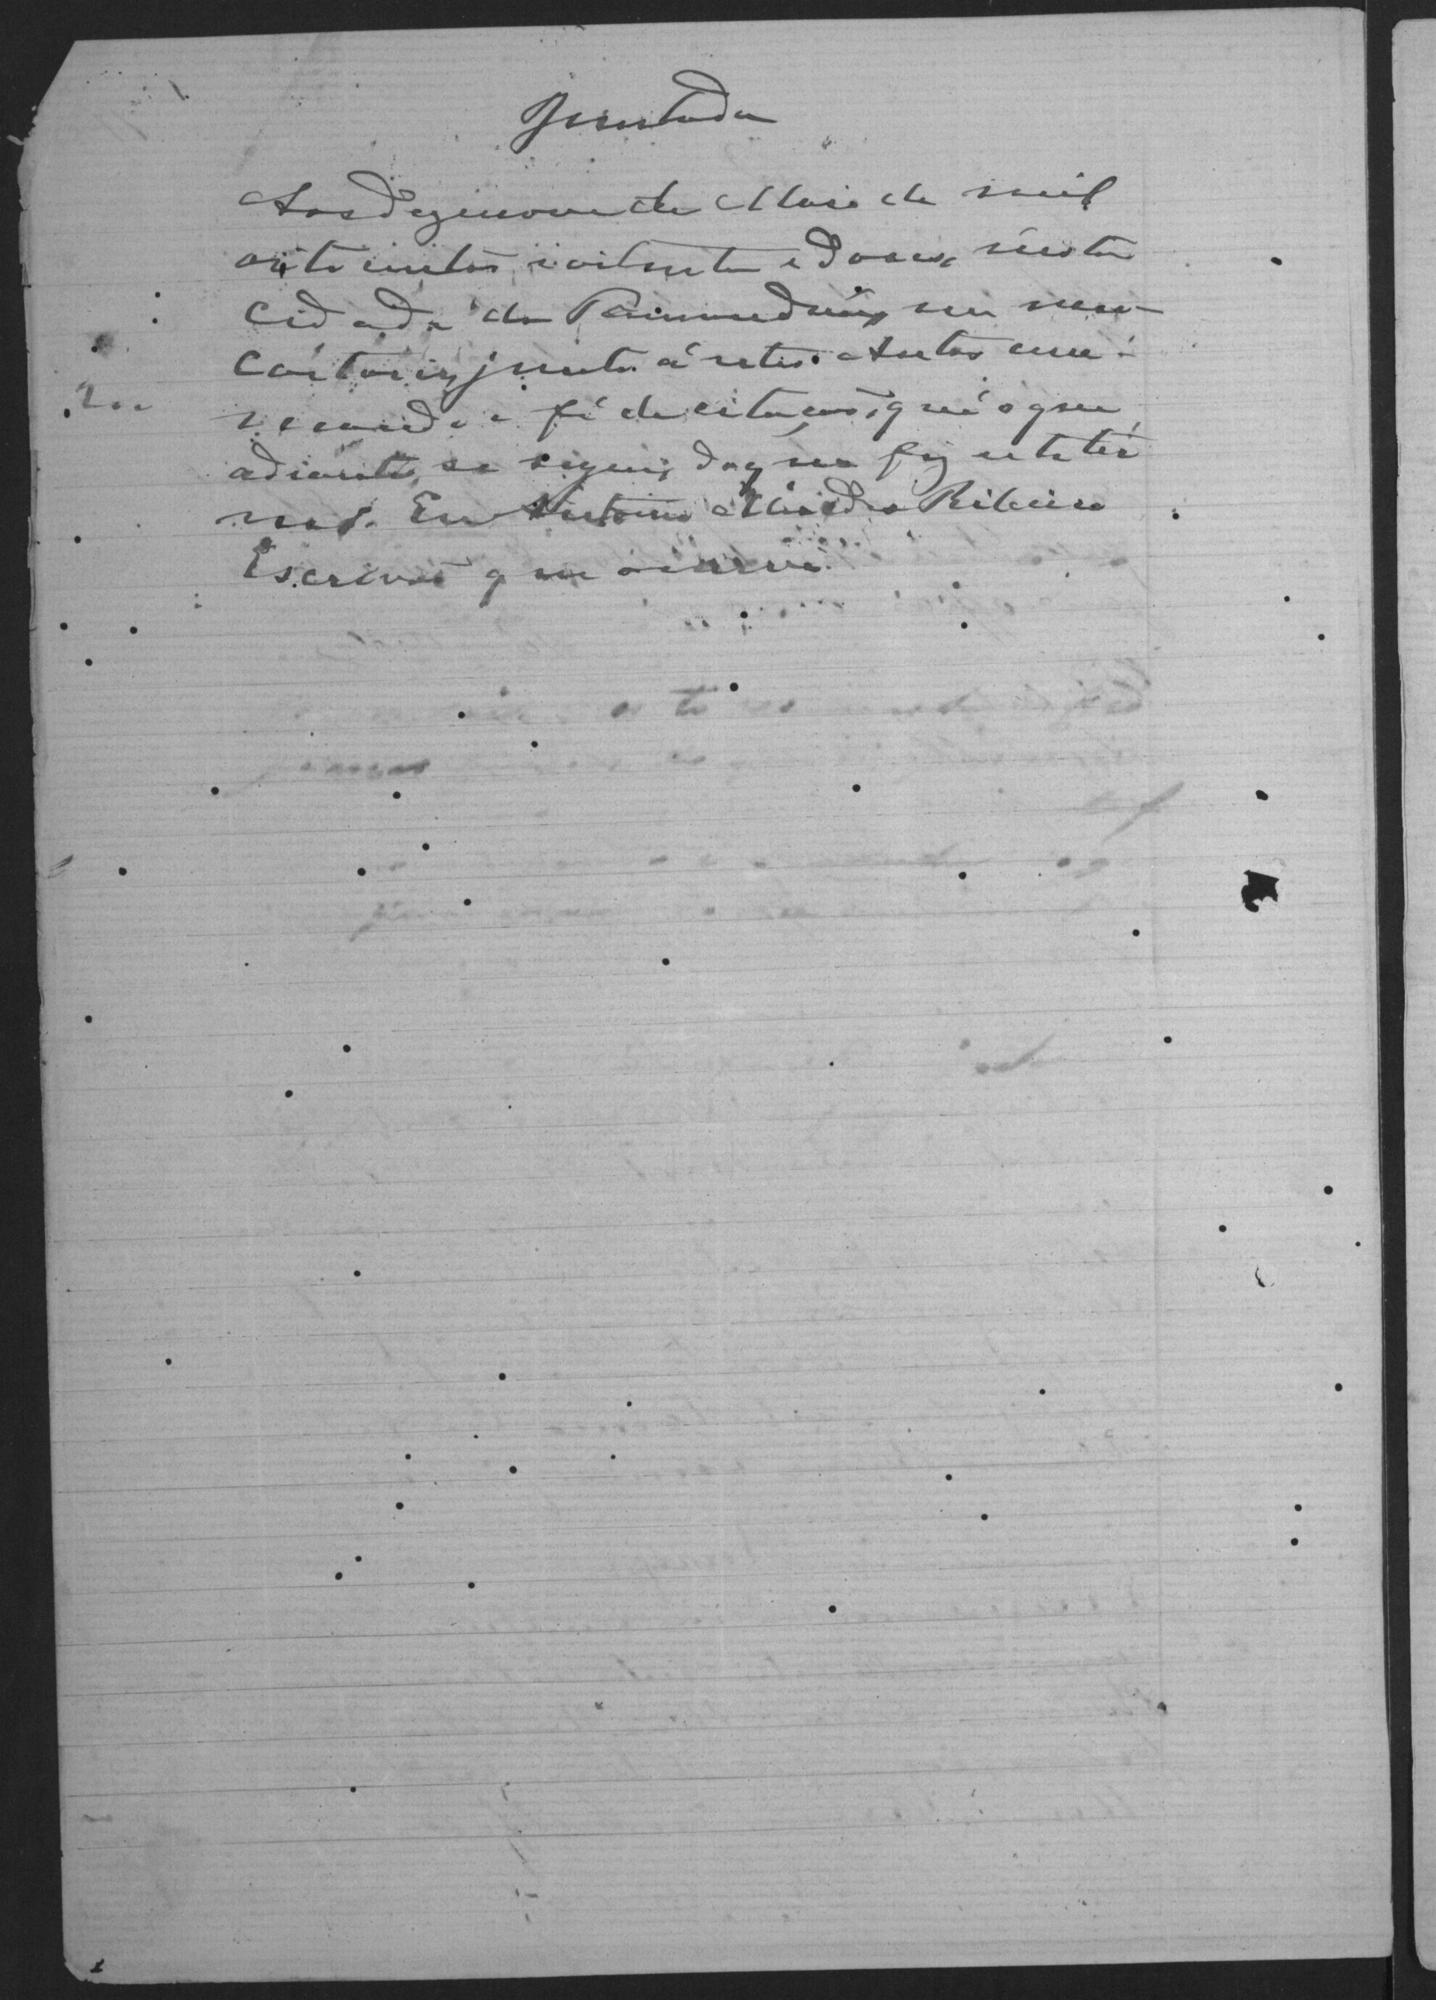 Juntada
Aos dezenove de Maio de mil
oito centos e oitenta e douis, nesta
cidade de em meu
Cartorio, junto á estes Autos um
e fé de citação, que é o que
adiante se segue; do que fiz este ter
mo. Eu Antonio Ribeiro
Escrivaõ que o escrevi.